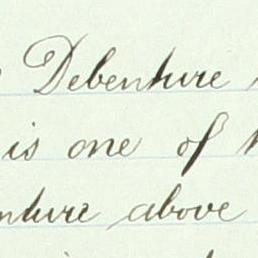 Debenture
is one of
nture above